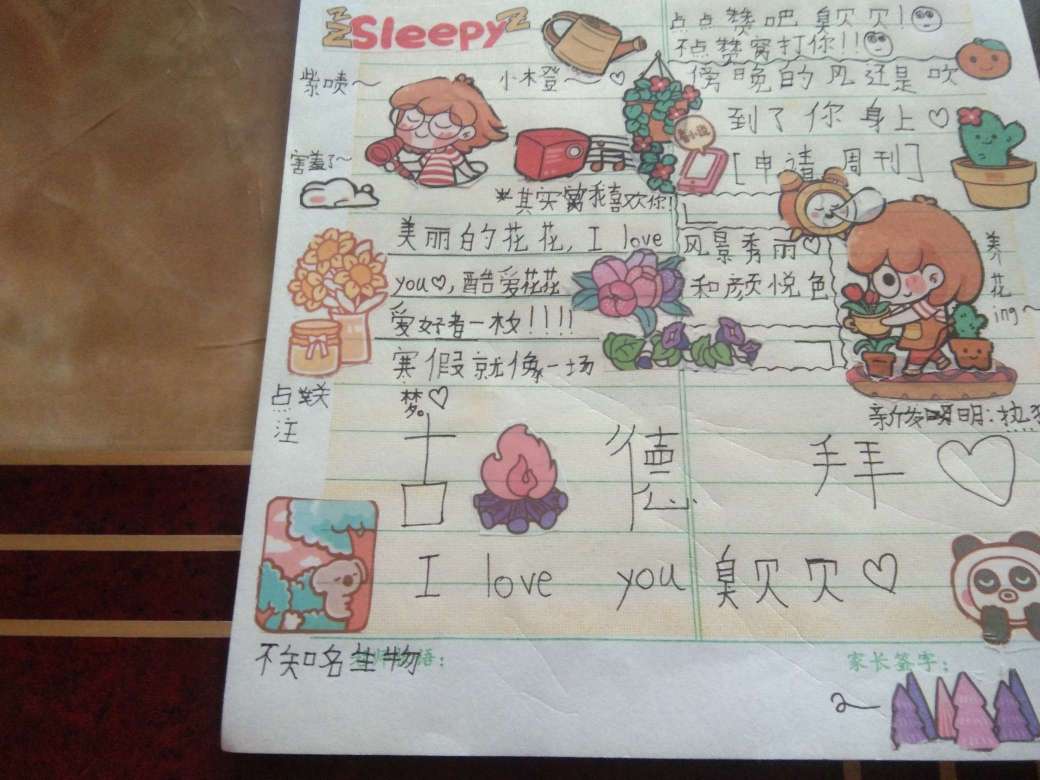 Sleepy
点点赞吧臭贝贝!
不点赞窝打你!!
紫啧~
小木登~
傍晚的风还是吹
到了你身上
[申请周刊]
害羞了~
*其实窝我喜欢你!
美丽的花花,I love
you,酷爱花花
爱好者一枚!!!!
寒假就像一场
梦。
风景秀丽
和颜悦色
养花
ing~
点关
注
新发明:热
古德拜
I love you 臭贝贝
不知名生物
语:
家长签字: